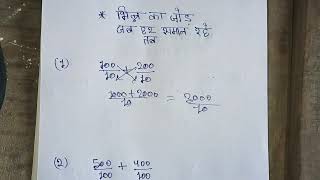 * भिन्न का जोड़
जब हर समान रहे
तब
(1) 100/10 + 200/10
1000+2000/10 = 2000/10
(2) 500/100 + 400/100